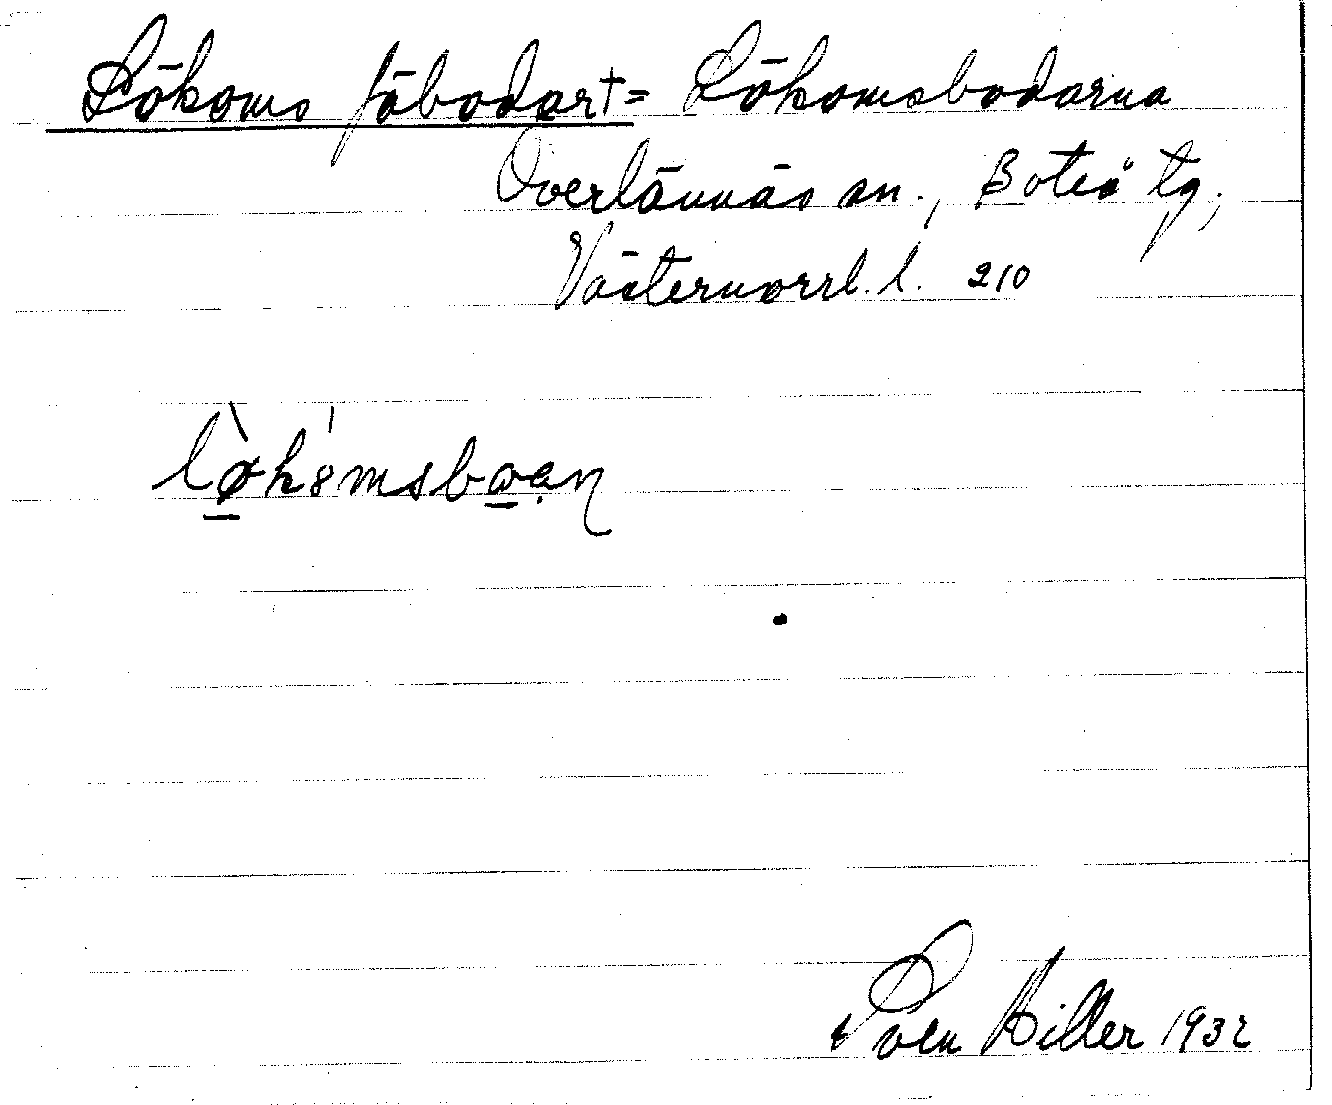 Lökoms fäbodar† = Lökomsbodarna
Överlännäs sn., Boteå tg,
Västernorrl. l. 210
lø̀kȣmsboan
Sven Hiller 1932